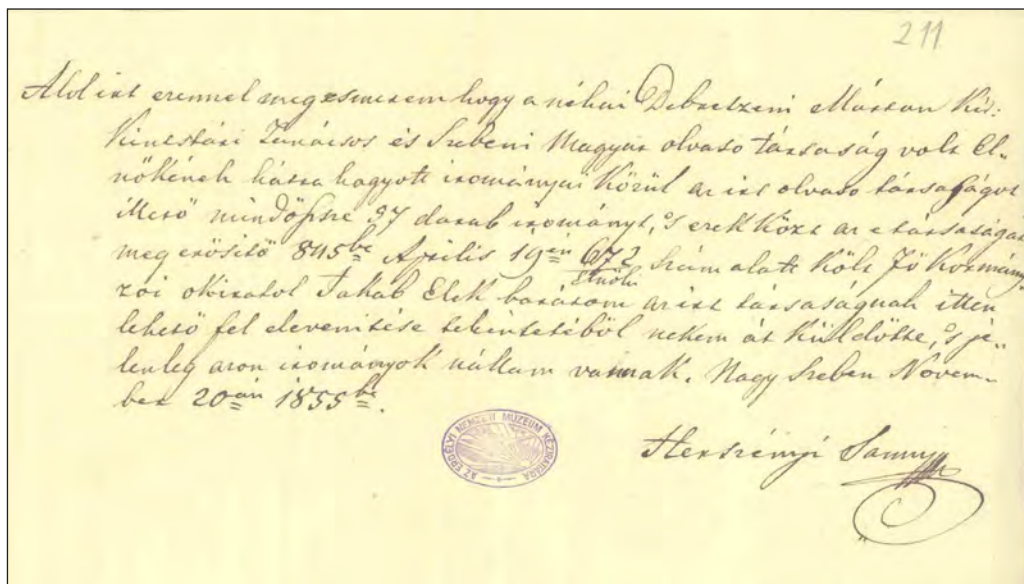 211
Alol irt ezennel megesmerem hogy a néhai Debretzeni Márton Kir:
Kincstári Tanácsos és Szebeni Magyar olvaso társaság volt El„
nökének hátra hagyott irományai Közül az irt olvaso társaságot
illető mindössze 97 darab irományt, 's ezek Közt az e társaságat
meg erősitő 845be Aprilis 19én 672 Elnöki Szám alatt Költ Fő Kormány„
zói okiratol Jakab Elek barátom az irt társaságnak itten
lehető fel elevenitése tekintetéböl nekem át Küldötte, 's je„
lenleg azon irományok nállam vannak. Nagy Szeben Novem„
ber 20án 1855be.
AZ ERDÉLYI NEMZETI MÚZEUM KÉZIRATTÁRA
Herszényi Samu